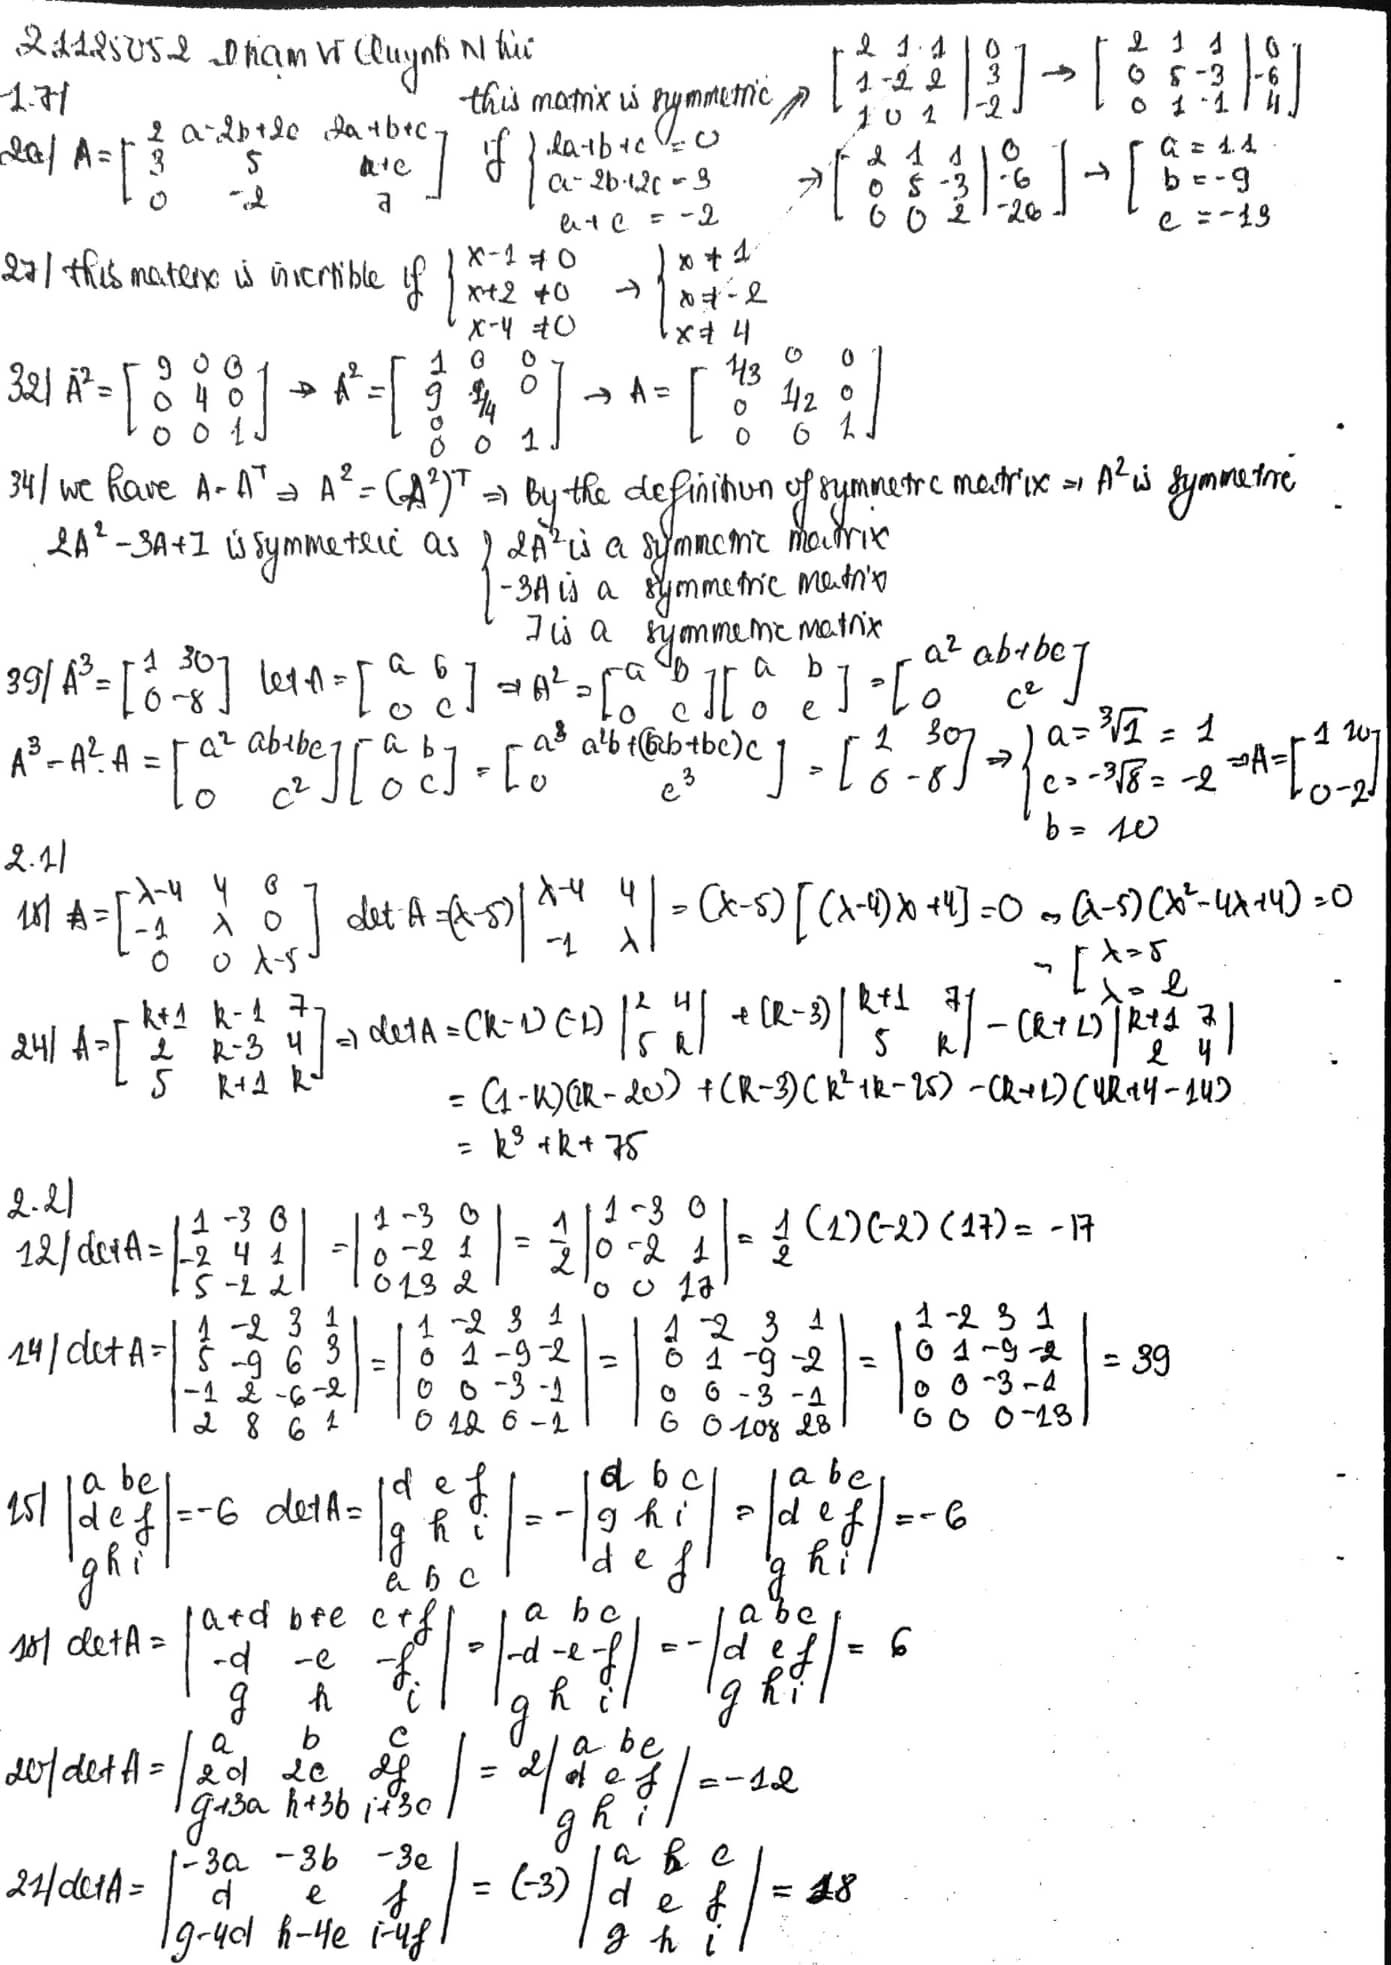 21125052 Phạm Vi Quỳnh Như
1.7/
this matrix is symmetric => [2 1 1 | 0; 1 -2 2 | 3; 1 0 1 | -2] → [2 1 1 | 0; 0 5 -3 | -6; 0 1 -1 | 4]
26/ A = [2 a-2b+2c 2a+b+c; 3 5 a+c; 0 -2 7] if { 2a+b+c = 0; a-2b+2c = 3; a+c = -2
→ [2 1 1 | 0; 0 5 -3 | -6; 0 0 2 | -26] → [a = 11; b = -9; c = -13
27/ this matrix is invertible if { x-1 ≠ 0; x+2 ≠ 0; x-4 ≠ 0 → { x ≠ 1; x ≠ -2; x ≠ 4
32/ A² = [9 0 0; 0 4 0; 0 0 1] → A² = [1 0 0; 9 1/4 0; 0; 0 0 1] → A = [1/3 0 0; 0 1/2 0; 0 0 1]
34/ we have A = Aᵀ ⇒ A² = (A²)ᵀ ⇒ By the definition of symmetric matrix ⇒ A² is symmetric
2A² - 3A + I is symmetric as { 2A² is a symmetric matrix
-3A is a symmetric matrix
I is a symmetric matrix
39/ A³ = [1 30; 0 -8] let A = [a b; 0 c] ⇒ A² = [a b; 0 c][a b; 0 c] = [a² ab+bc; 0 c²]
A³ = A².A = [a² ab+bc; 0 c²][a b; 0 c] = [a³ a²b+(ab+bc)c; 0 c³] = [1 30; 0 -8] ⇒ { a = ∛1 = 1; c = -∛8 = -2; b = 10 ⇒ A = [1 10; 0 -2]
2.1/
18/ A = [λ-4 4 0; -1 λ 0; 0 0 λ-5] det A = (λ-5) |λ-4 4; -1 λ| = (λ-5)[(λ-4)λ+4] = 0 → (λ-5)(λ²-4λ+4) = 0
→ [λ = 5; λ = 2
24/ A = [k+1 k-1 7; 2 k-3 4; 5 k+1 k] ⇒ det A = (k-1)(-1) |2 4; 5 k| + (k-3) |k+1 7; 5 k| - (k+1) |k+1 7; 2 4|
= (1-k)(2k-20) + (k-3)(k²+k-25) - (k+1)(4k+4-14)
= k³ + k + 75
2.2/
12/ det A = |1 -3 0; -2 4 1; 5 -2 2| = |1 -3 0; 0 -2 1; 0 13 2| = 1/2 |1 -3 0; 0 -2 1; 0 0 17| = 1/2 (1)(-2)(17) = -17
14/ det A = |1 -2 3 1; 5 -9 6 3; -1 2 -6 -2; 2 8 6 1| = |1 -2 3 1; 0 1 -9 -2; 0 0 -3 -1; 0 12 0 -1| = |1 -2 3 1; 0 1 -9 -2; 0 0 -3 -1; 0 0 108 23| = |1 -2 3 1; 0 1 -9 -2; 0 0 -3 -1; 0 0 0 -13| = 39
15/ |a b c; d e f; g h i| = -6 det A = |d e f; g h i; a b c| = - |a b c; g h i; d e f| = |a b c; d e f; g h i| = -6
18/ det A = |a+d b+e c+f; -d -e -f; g h i| = |a b c; -d -e -f; g h i| = - |a b c; d e f; g h i| = 6
20/ det A = |a b c; 2d 2e 2f; g+3a h+3b i+3c| = 2 |a b c; d e f; g h i| = -12
21/ det A = |-3a -3b -3c; d e f; g-4d h-4e i-4f| = (-3) |a b c; d e f; g h i| = 18